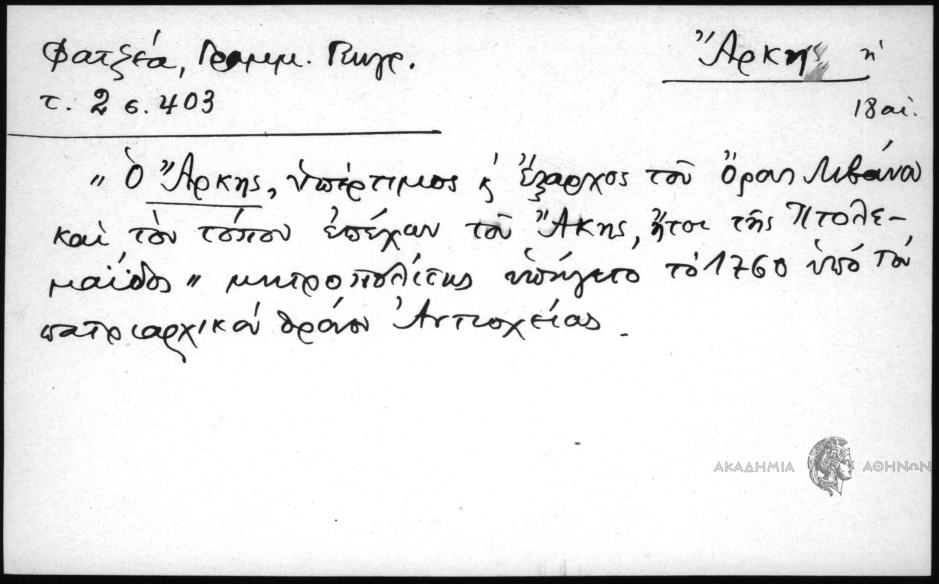 Φατζέα, Γραμμ. Γεωγρ.
Ἄρκη ἡ
τ. 2 σ. 403
18 αἰ.
"Ὁ Ἄρκης, ὑπέρτιμος κ ἔξαρχος τοῦ ὄρους Λιβάνου
καὶ τὸν τόπον ἐπέχων τοῦ Ἄκης, ἤτοι τῆς Πτολε-
μαΐδος" μητροπολίτης ὑπήγετο τὸ 1760 ὑπὸ τὸν
πατριαρχικὸν θρόνον Ἀντιοχείας.
ΑΚΑΔΗΜΙΑ ΑΘΗΝΩΝ